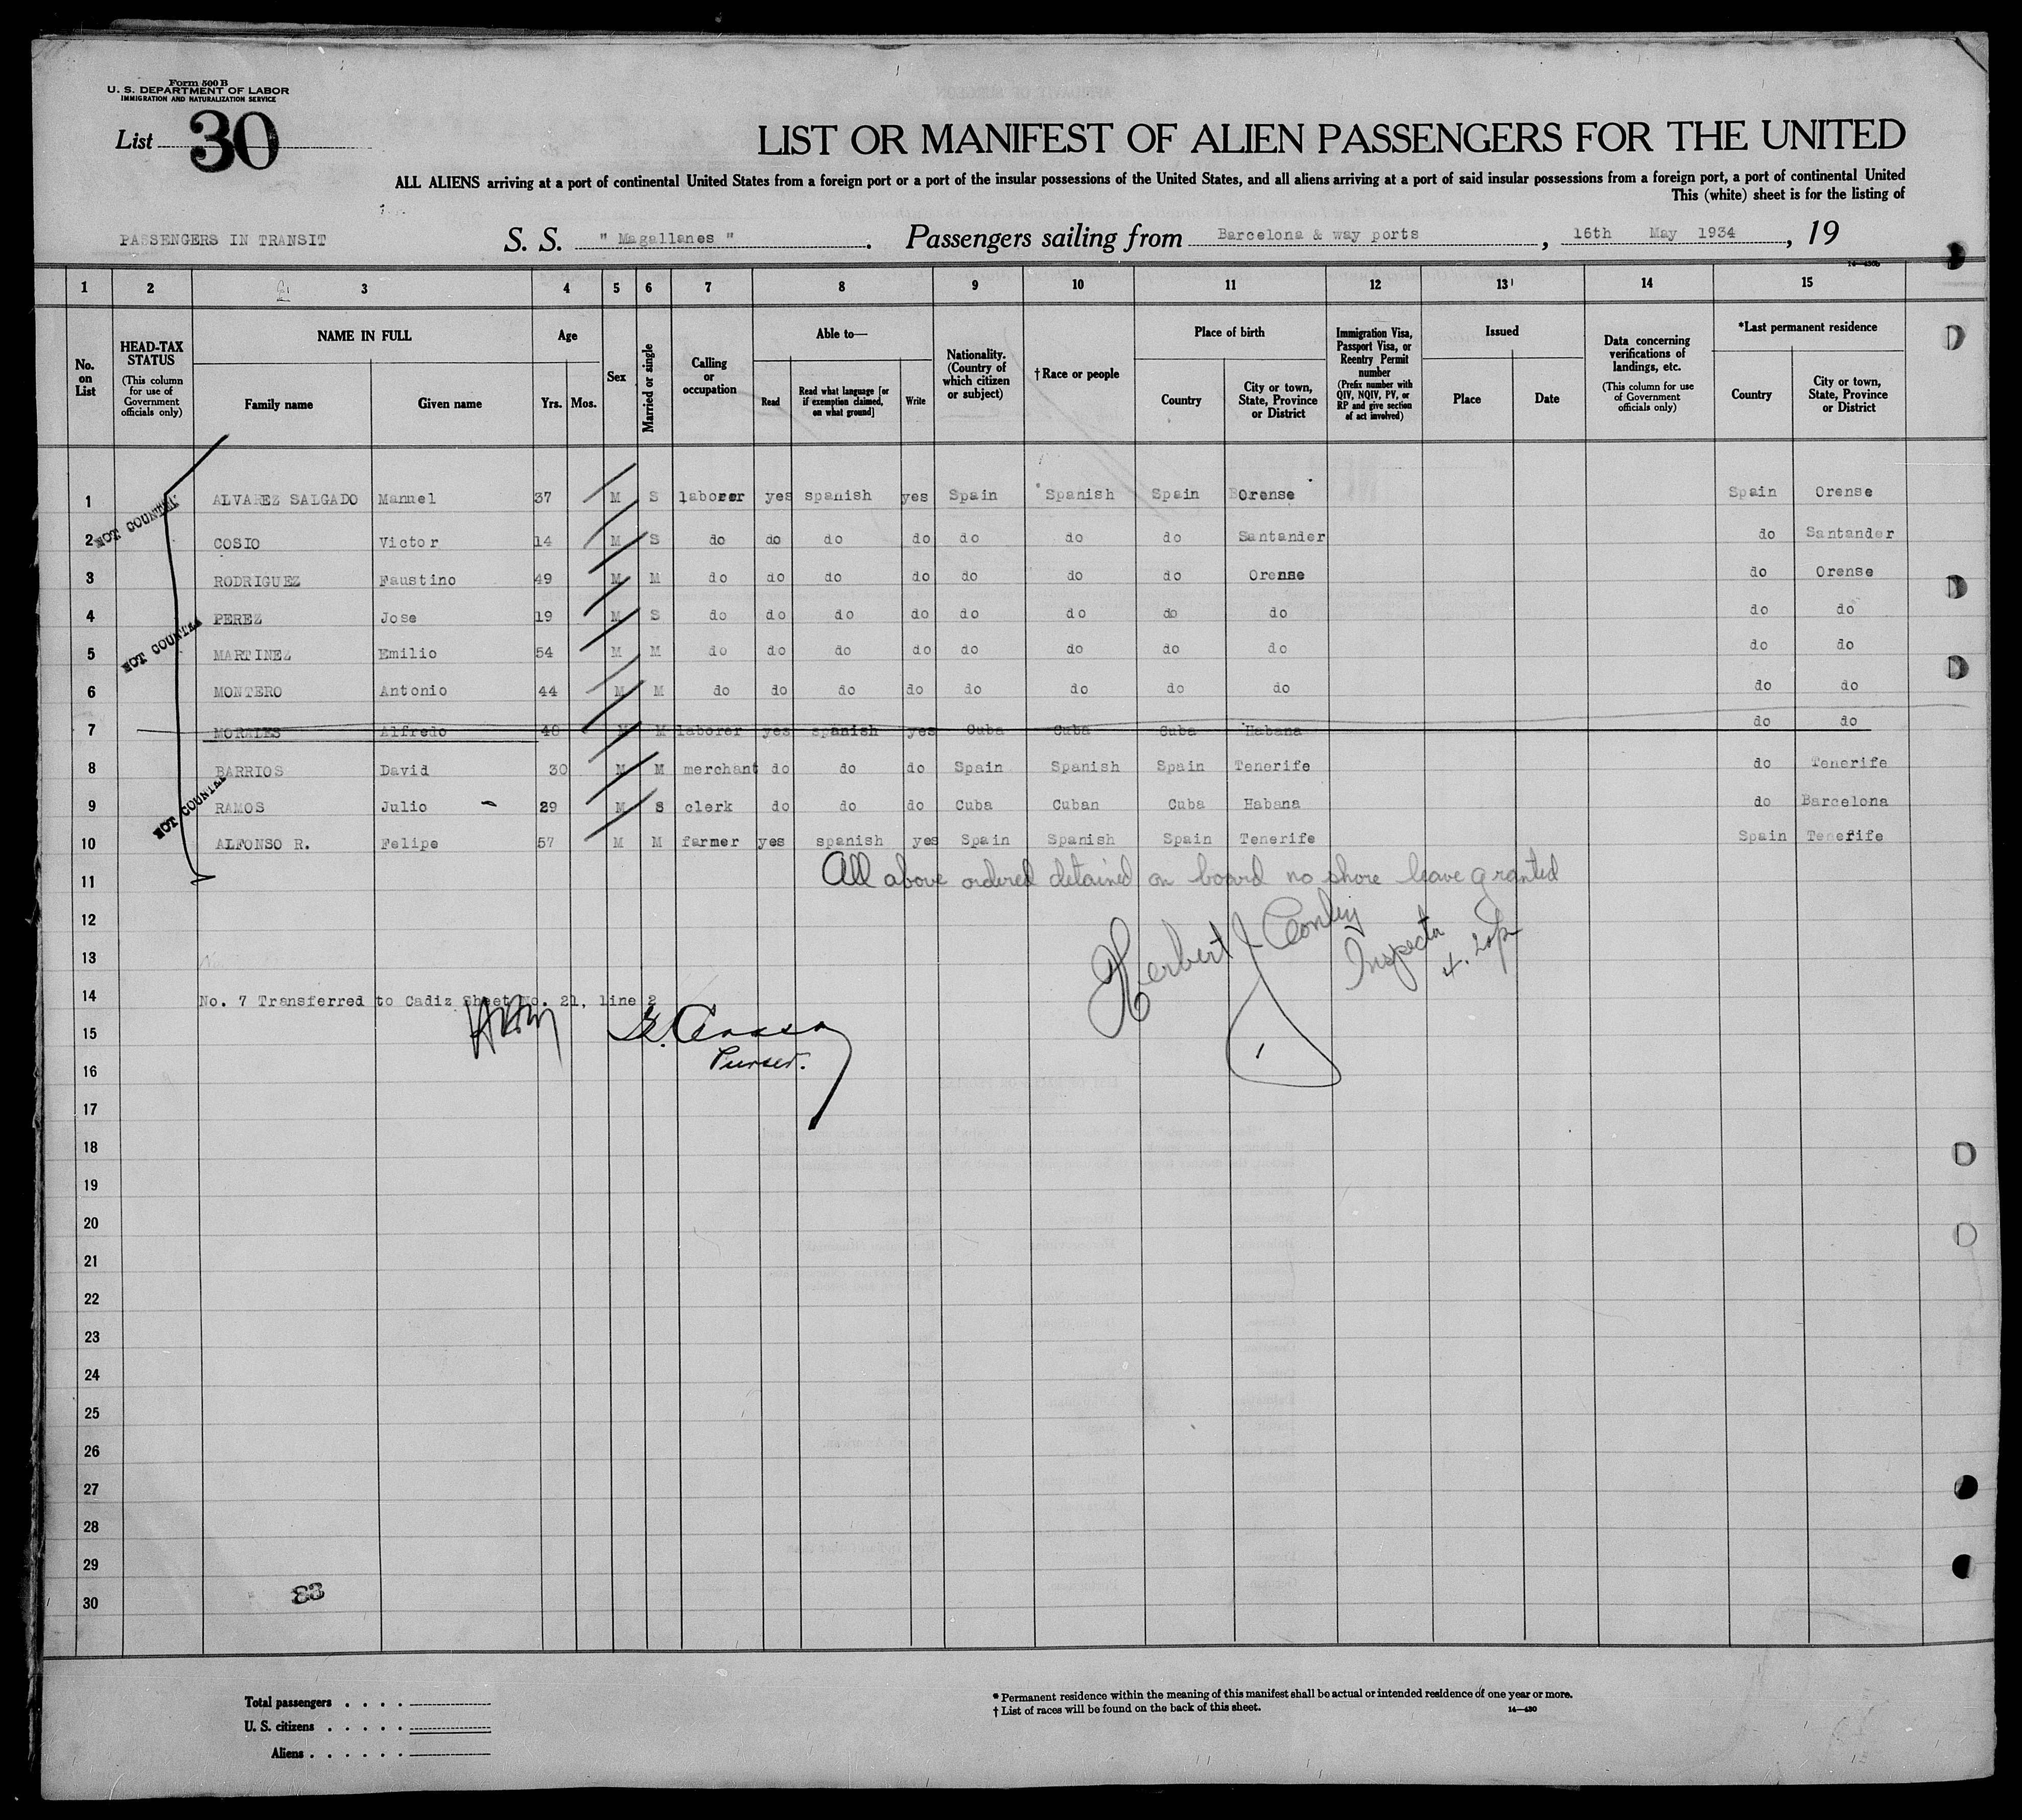 Form 500 B
U. S. DEPARTMENT OF LABOR
IMMIGRATION AND NATURALIZATION SERVICE
List 30
LIST OR MANIFEST OF ALIEN PASSENGERS FOR THE UNITED
ALL ALIENS arriving at a port of continental United States from a foreign port or a port of the insular possessions of the United States, and all aliens arriving at a port of said insular possessions from a foreign port, a port of continental United
This (white) sheet is for the listing of
PASSENGERS IN TRANSIT S. S. " Magallanes " . Passengers sailing from Barcelona & way ports , 16th May 1934 , 19
14—430b
1 2 3 4 5 6 7 8 9 10 11 12 13 14 15
No. on List
HEAD-TAX STATUS (This column for use of Government officials only)
NAME IN FULL
Family name Given name
Age
Yrs. Mos.
Sex
Married or single
Calling or occupation
Able to—
Read Read what language [or if exemption claimed, on what ground] Write
Nationality. (Country of which citizen or subject)
†Race or people
Place of birth
Country City or town, State, Province or District
Immigration Visa, Passport Visa, or Reentry Permit number (Prefix number with QIV, NQIV, PV, or RP and give section of act involved)
Issued
Place Date
Data concerning verifications of landings, etc. (This column for use of Government officials only)
*Last permanent residence
Country City or town, State, Province or District
1 ALVAREZ SALGADO Manuel 37 M S laborer yes spanish yes Spain Spanish Spain Orense Spain Orense
NOT COUNTED
2 COSIO Victor 14 M S do do do do do do do Santander do Santander
3 RODRIGUEZ Faustino 49 M M do do do do do do do Orense do Orense
4 PEREZ Jose 19 M S do do do do do do do do do do
NOT COUNTED
5 MARTINEZ Emilio 54 M M do do do do do do do do do do
6 MONTERO Antonio 44 M M do do do do do do do do do do
7 MORALES Alfredo 48 M M laborer yes spanish yes Cuba Cuba Cuba Habana do do
8 BARRIOS David 30 M M merchant do do do Spain Spanish Spain Tenerife do Tenerife
NOT COUNTED
9 RAMOS Julio 29 M S clerk do do do Cuba Cuban Cuba Habana do Barcelona
10 ALFONSO R. Felipe 57 M M farmer yes spanish yes Spain Spanish Spain Tenerife Spain Tenerife
11 All above ordered detained on board no shore leave granted
12 Herbert J Conley Inspector
13
14 No. 7 Transferred to Cadiz Sheet No. 21, line 2
15
16 Purser.
17
18
19
20
21
22
23
24
25
26
27
28
29
30
83
Total passengers . . . .
U. S. citizens . . . . .
Aliens . . . . . .
* Permanent residence within the meaning of this manifest shall be actual or intended residence of one year or more.
† List of races will be found on the back of this sheet. 14—430